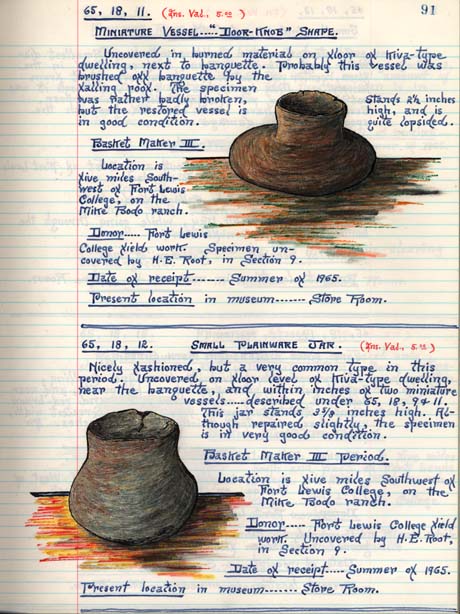 91
65, 18, 11. (Ins. Val., 5.00)
Miniature Vessel....."Door-Knob" Shape.
Uncovered in burned material on floor of Kiva-type
dwelling, next to banquette. Probably this vessel was
brushed off banquette by the
falling roof. The specimen
was rather badly broken,
but the restored vessel is
in good condition.
Stands 2½ inches
high, and is
quite lopsided.
Basket Maker III.
Location is
five miles South-
west of Fort Lewis
College, on the
Mike Bodo ranch.
Donor..... Fort Lewis
College field work. Specimen un-
covered by H.E. Root, in Section 9.
Date of receipt-------- Summer of 1965.
Present location in museum------- Store Room.
65, 18, 12. Small Plainware Jar. (Ins. Val., 5.00)
Nicely fashioned, but a very common type in this
period. Uncovered, on floor level of Kiva-type dwelling,
near the banquette, and within inches of two miniature
vessels.....described under 65, 18, 9 & 11.
This jar stands 3⅞ inches high. Al-
though repaired slightly, the specimen
is in very good condition.
Basket Maker III Period.
Location is five miles Southwest of
Fort Lewis College, on the
Mike Bodo ranch.
Donor..... Fort Lewis College field
work. Uncovered by H.E. Root,
in Section 9.
Date of receipt..... Summer of 1965.
Present location in museum-------- Store Room.